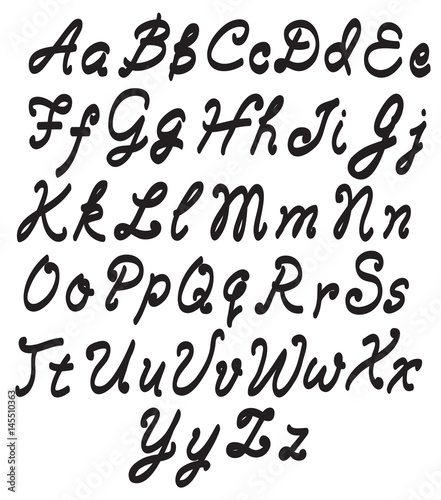 Aa Bb Cc Dd Ee
Ff Gg Hh Ii Jj
Kk Ll Mm Nn
Oo Pp Qq Rr Ss
Tt Uu Vv Ww Xx
Yy Zz
Adobe Stock | #145510363